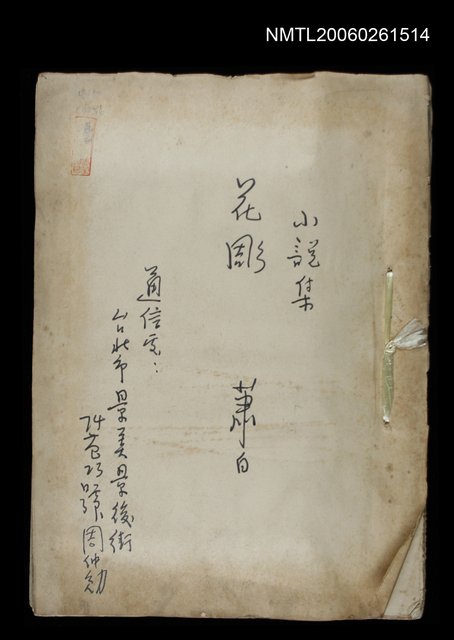 NMTL20060261514
小說集
花彫
蕭白
通信處：
台北市景美景後街
74巷15號周仲勛